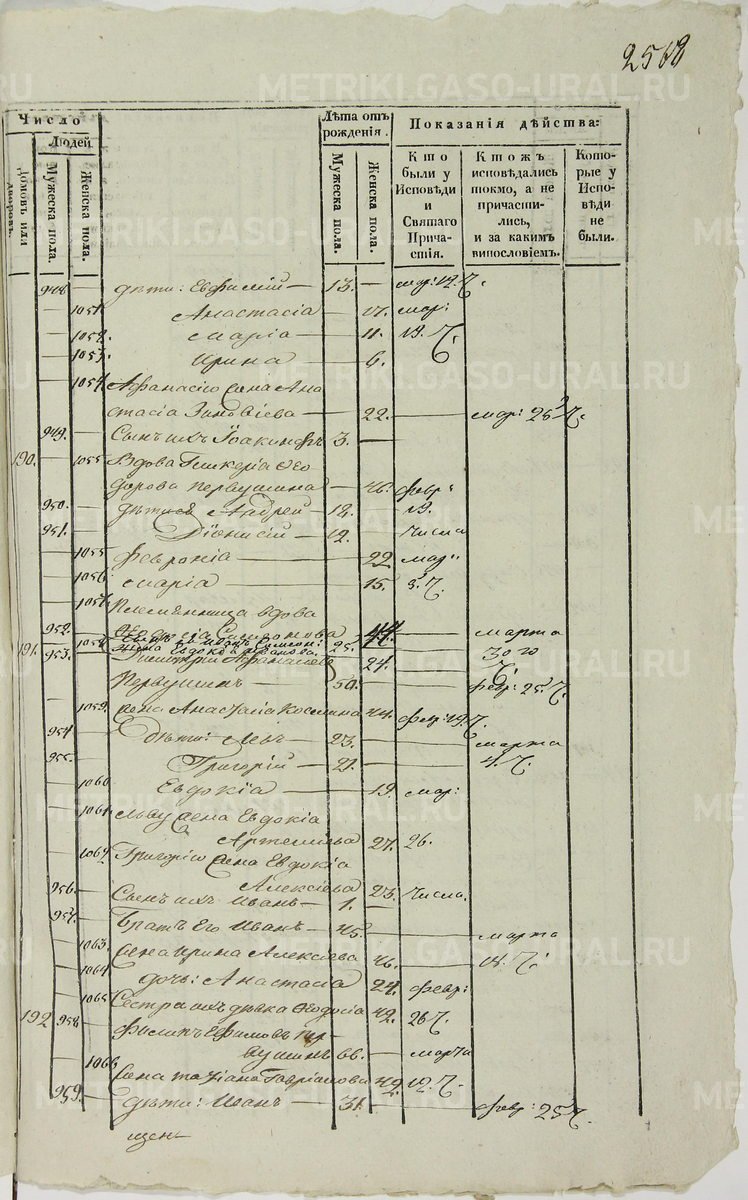 2568
Число
Людей
Домовъ или дворовъ.
Мужеска пола.
Женска пола.
Лѣта отъ рожденія.
Мужеска пола.
Женска пола.
Показанія дѣйства:
Кто были у Исповѣди и Святаго Причастія.
Ктожъ исповѣдались токмо, а не причастились, и за какимъ винословіемъ.
Которые у Исповѣди не были.
948. — дѣти: Евфимій — 13. — мар: 19. Ч.
— 1051. Анастасія — 17. мар:
— 1052. Марія — 11. 19. Ч.
— 1053. Ирина — 6.
— 1054. Афанасію жена Ана
стасія Зиновіева — 22. — мар: 26 Ч.
949. — Сынъ ихъ Іоакинфъ 3. —
190. — 1055 Вдова Гликерія Ѳео
дорова Первушина — 46. февр:
950. — дѣти Андрей — 18. — 19.
951. — Діонисій — 12. — Числа
— 1055 Февронія — 22 мар:
— 1056. Марія — 15. 5. Ч.
— 1057. Племянница вдова
Симонова 44. — марта
952. — Иванъ 25. — 30 го
1058. жена Евдокія Иванова. 24. — Ч.
191. 953. — Димитрій Афанасіевъ
Первушинъ — 50. — февр: 25. Ч.
— 1059. жена Анастасія Козмина 44. февр: 19. Ч.
954. — дѣти: Левъ — 23. — марта
955. — Григорій — 21. — 4. Ч.
— 1060 Евдокія — 19. мар:
— 1061 Льву жена Евдокія
Артеміева 27. 26.
— 1062 Григорію жена Евдокія
Алексіева 23. Числа.
956. — Сынъ ихъ Иванъ — 1. —
957. — Братъ Его Иванъ — 45. — марта
— 1063. жена Ирина Алексіева 46. — 18. Ч.
— 1064 дочь: Анастасія 24. февр:
— 1065 Сестра ихъ дѣвка Ѳеодосія 42. 26 Ч.
192 958. — Филипъ Ефимовъ Пер-
вушинъ 66. — марта
— 1066 жена Татіана Гавріилова 42. 19. Ч.
959. — дѣти: Иванъ — 31. — февр: 25 Ч.
METRIKI.GASO-URAL.RU